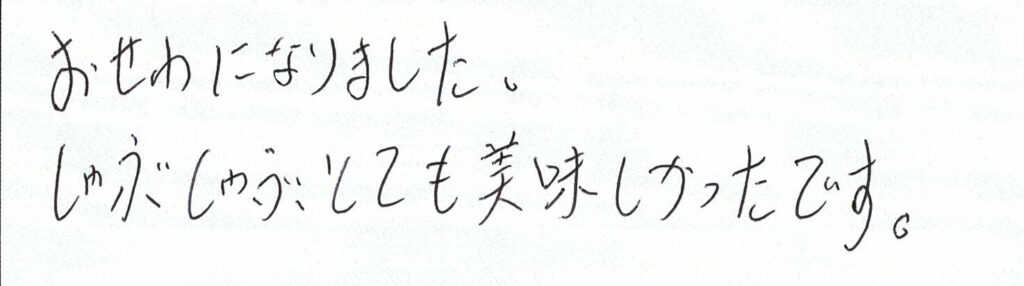 おせわになりました。
しゃぶしゃぶとても美味しかったです。